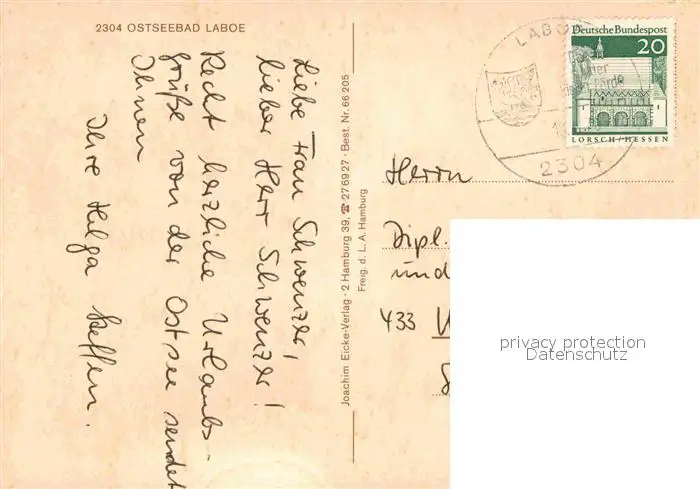 2304 OSTSEEBAD LABOE
Liebe Frau Schwenzer,
lieber Herr Schwenzer!
Recht herzliche Urlaubs-
grüße von der Ostsee sendet
Ihnen
Ihre Helga Steffen.
Joachim Eicke-Verlag · 2 Hamburg 39, ☎ 276927 · Best. Nr. 66 205
Freig. d. L. A. Hamburg
LABOE
2304
Deutsche Bundespost
20
LORSCH/HESSEN
Herrn
Dipl.
und
433
privacy protection
Datenschutz